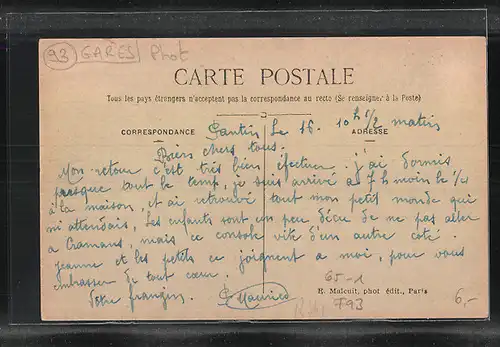 93 GARES Phot
CARTE POSTALE
Tous les pays étrangers n'acceptent pas la correspondance au recto (Se renseigner à la Poste)
CORRESPONDANCE
ADRESSE
Pantin, Le 16. 10h 1/2 matin
chers tous.
Mon retour c'est très bien éfectuer. j'ai dormis
presque tout le temp, je suis arrivé à 7h moin le 1/4
à la maison, et ai retrouvé tout mon petit monde qui
mi attendais, Les enfants sont un peu déçu de ne pas aller
à Cramans, mais ce console vite d'un autre coté
jeanne et les petits ce joignent a moi, pour vous
embrasser de tout cœur.
Votre frangin. Maurice
E. Malcuit, phot édit., Paris
65-1
793
6,-